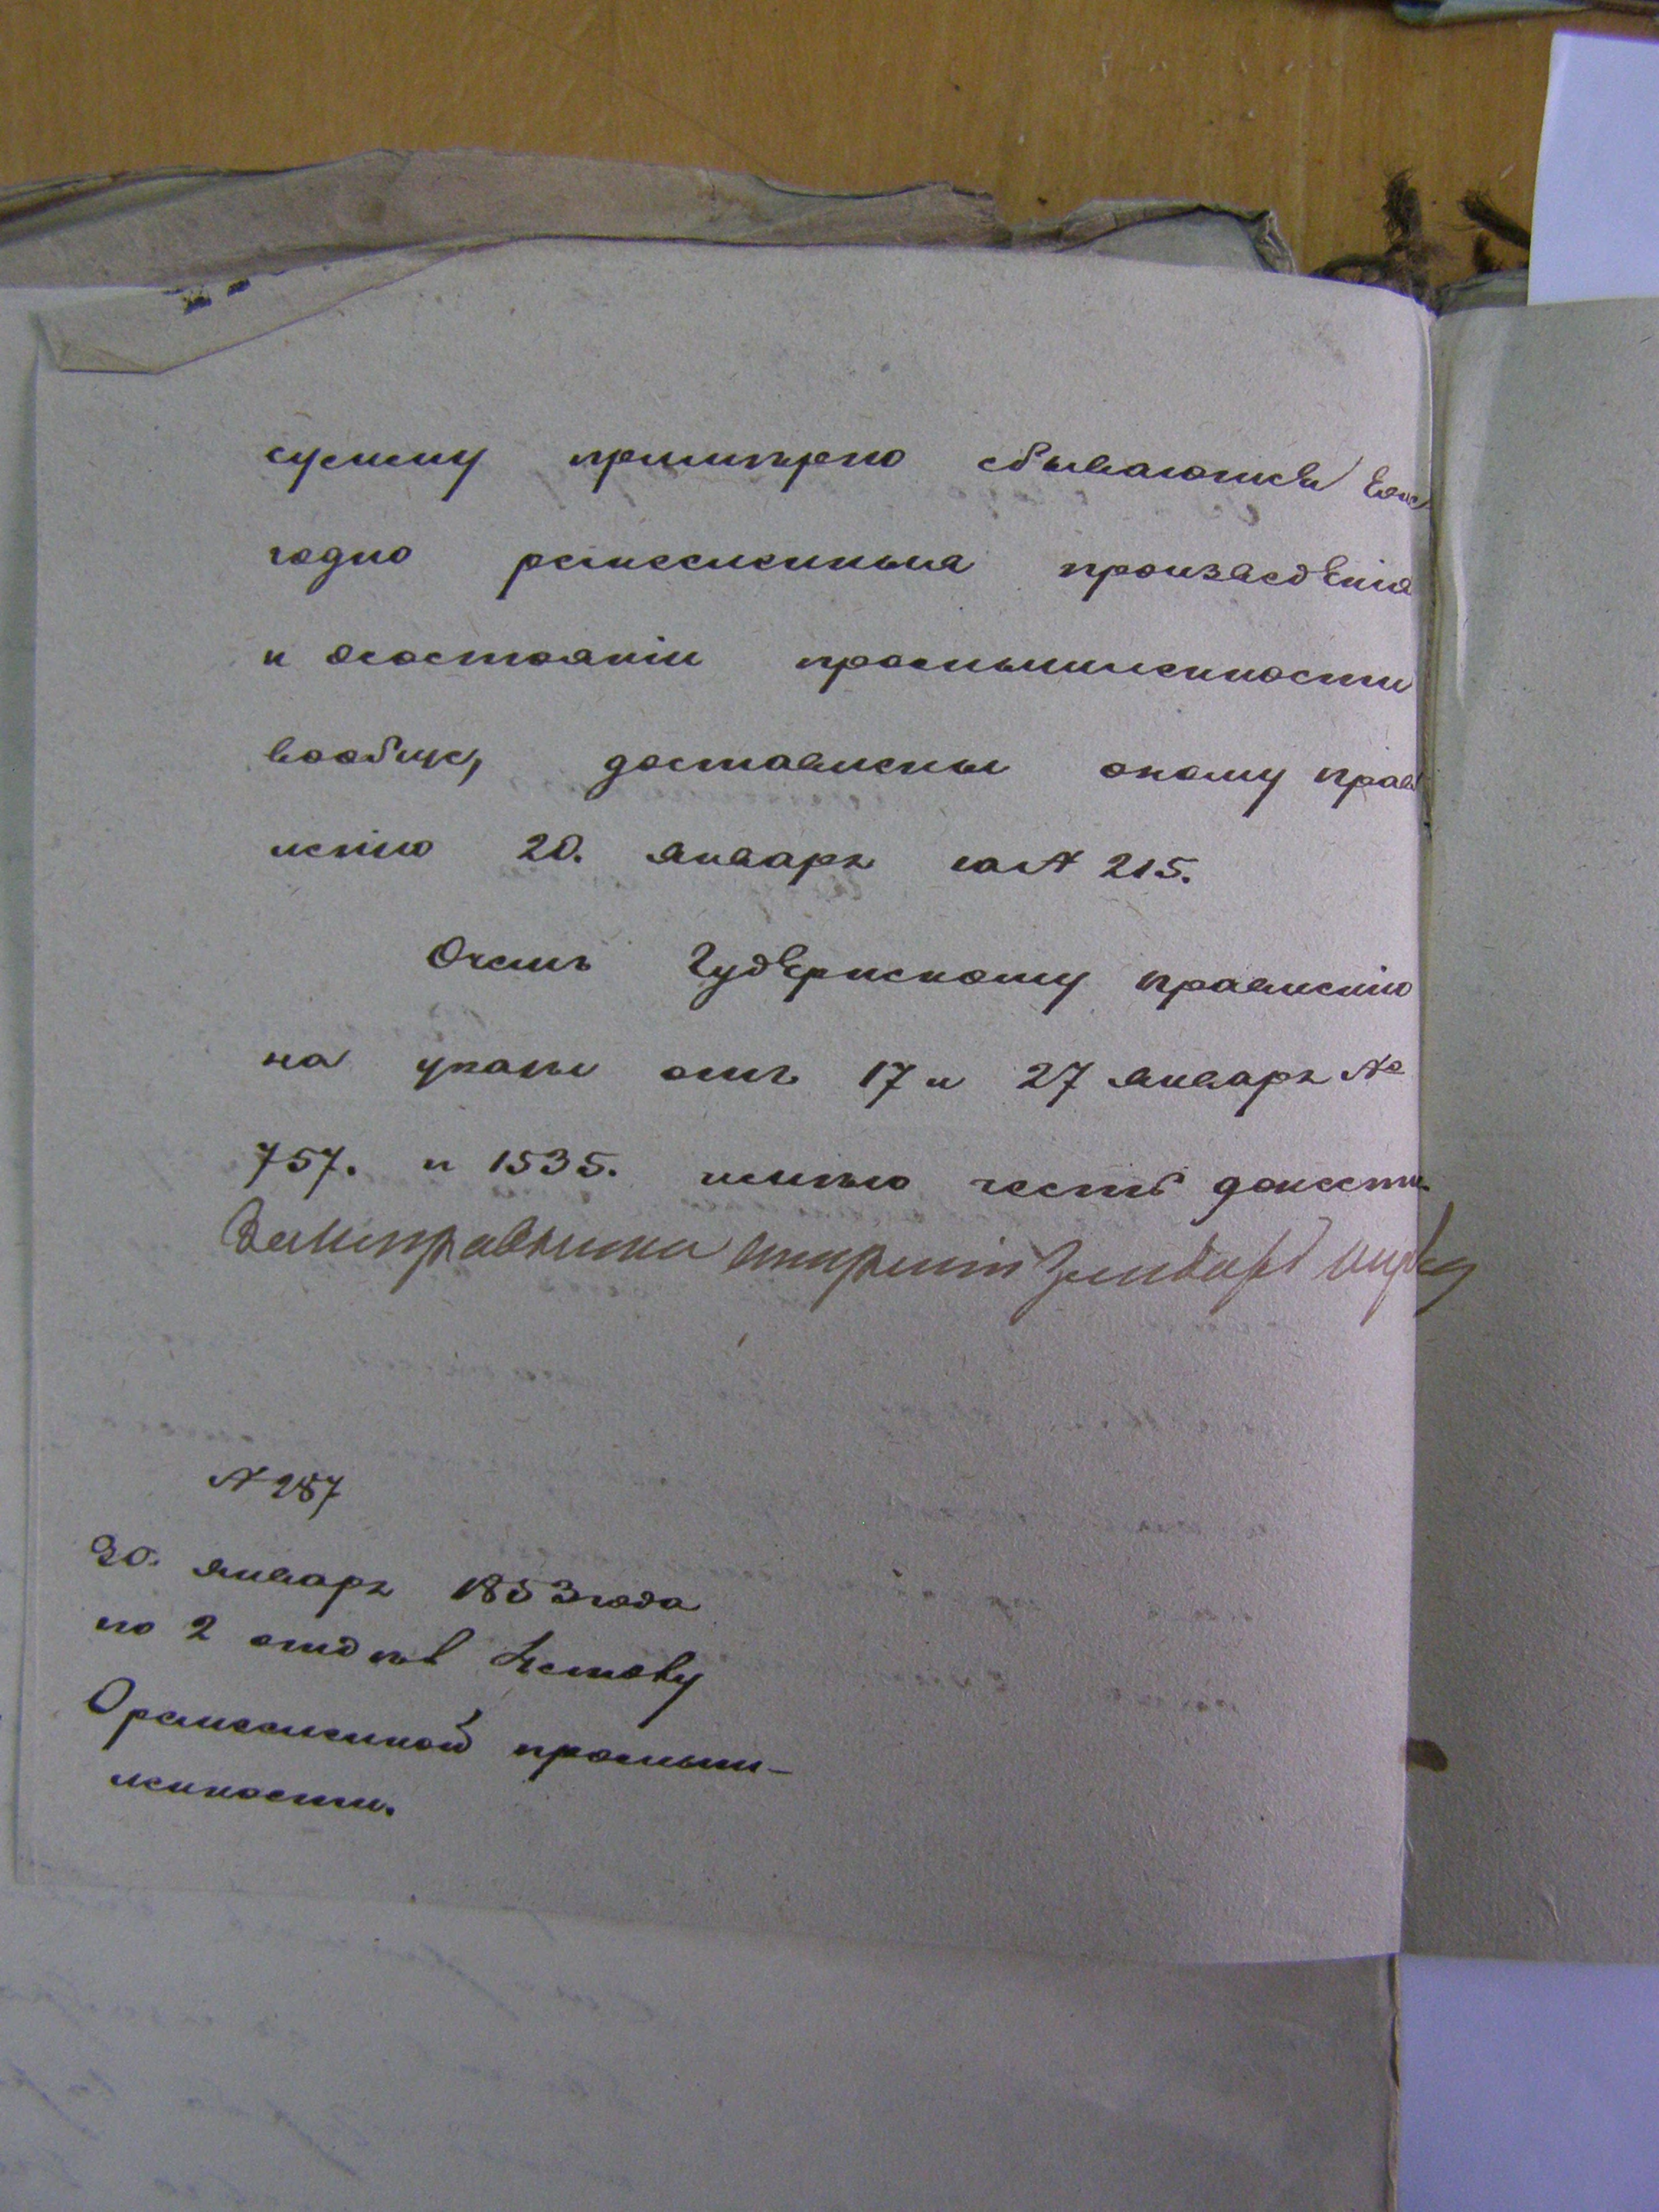 сумму примѣрно сбываются еже
годно ремесленныя произведенія
и осостояніи промышленности
вообще, доставлены оному прав
ленію 20. январь за № 215.
Очемъ Губернскому правленію
на указы отъ 17 и 27 январь №
757. и 1535. имѣю честь донести.
Заисправника старшій
№ 287
30. январь 1853 года
по 2 отдѣл 1 столу
Оремесленной промыш-
ленности.